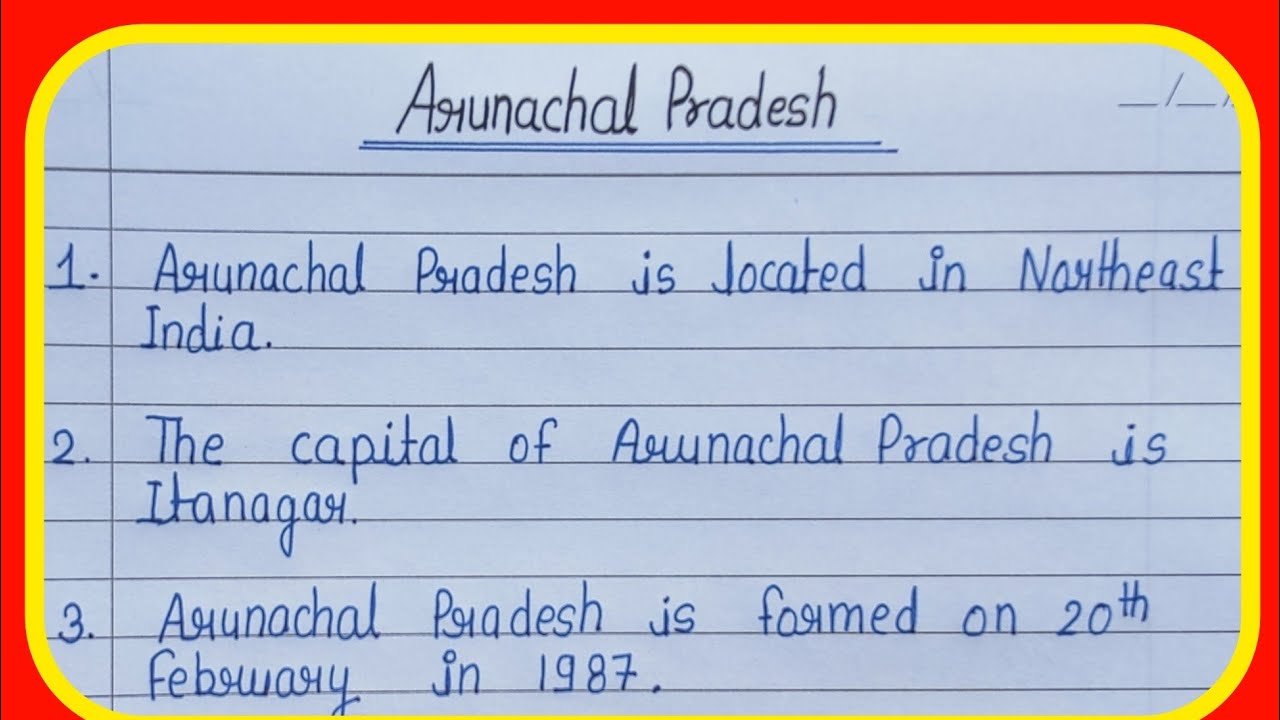 Arunachal Pradesh
__/__/
1. Arunachal Pradesh is located in Northeast
India.
2. The capital of Arunachal Pradesh is
Itanagar.
3. Arunachal Pradesh is formed on 20th
February in 1987.